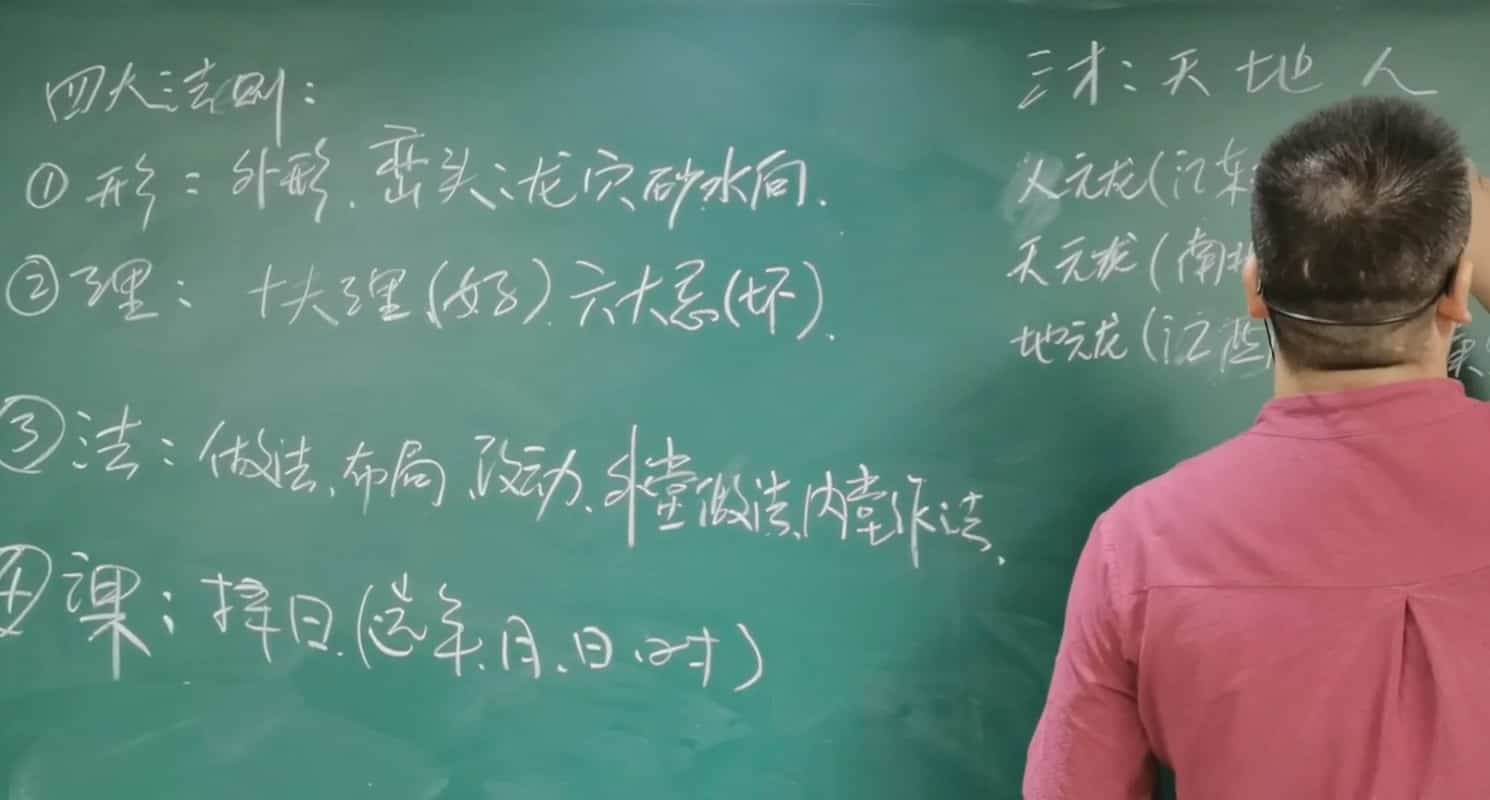 四大法则:
①形:外形.峦头:龙穴砂水向.
②理: 十大理(好).六大忌(坏).
③法:做法、布局、改动、外堂做法、内堂作法、
④课:择日.(选年、月、日、时)
三才:天 地 人
人元龙(江东
天元龙(南北
地元龙(江西